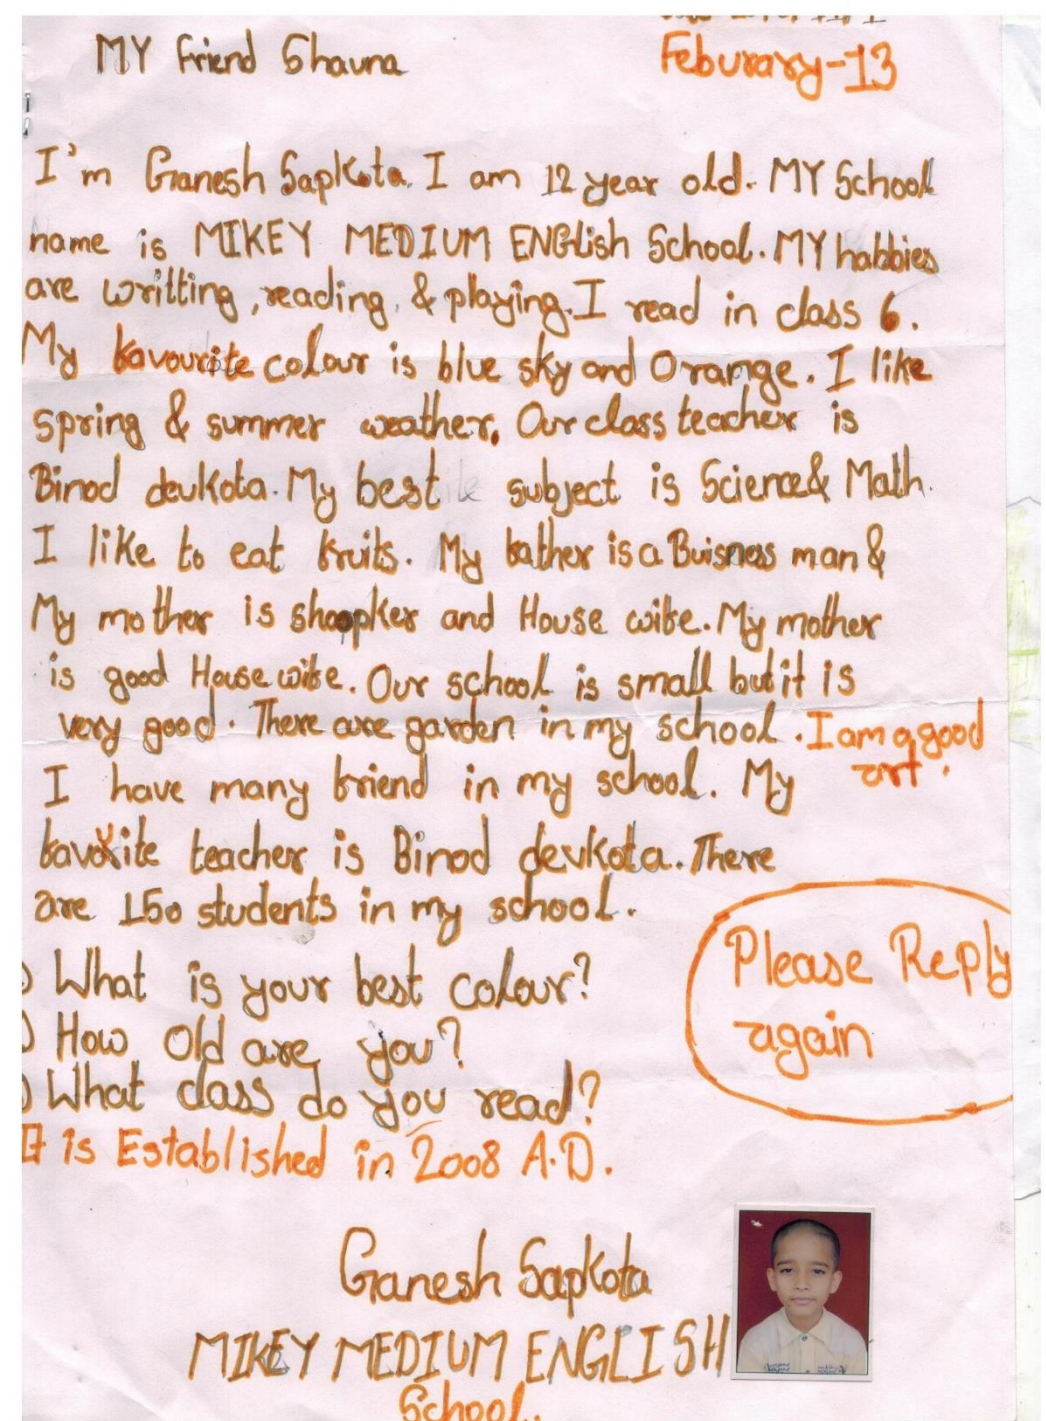 MY friend Shauna
Feburary-13
I'm Ganesh Sapkota. I am 12 year old. MY School
name is MIKEY MEDIUM ENGlish School. MY habbies
are writting, reading, & playing. I read in class 6.
My favourite colour is blue sky and Orange. I like
spring & summer weather. Our class teacher is
Binod devkota. My best subject is Science & Math.
I like to eat fruits. My father is a Buisness man &
My mother is shoopker and House wife. My mother
is good House wife. Our school is small but it is
very good. There are garden in my school. I am a good
art.
I have many friend in my school. My
favorite teacher is Binod devkota. There
are 150 students in my school.
) What is your best colour?
) How old are you?
) What class do you read?
It is Established in 2008 A.D.
Please Reply
again
Ganesh Sapkota
MIKEY MEDIUM ENGLISH
School.